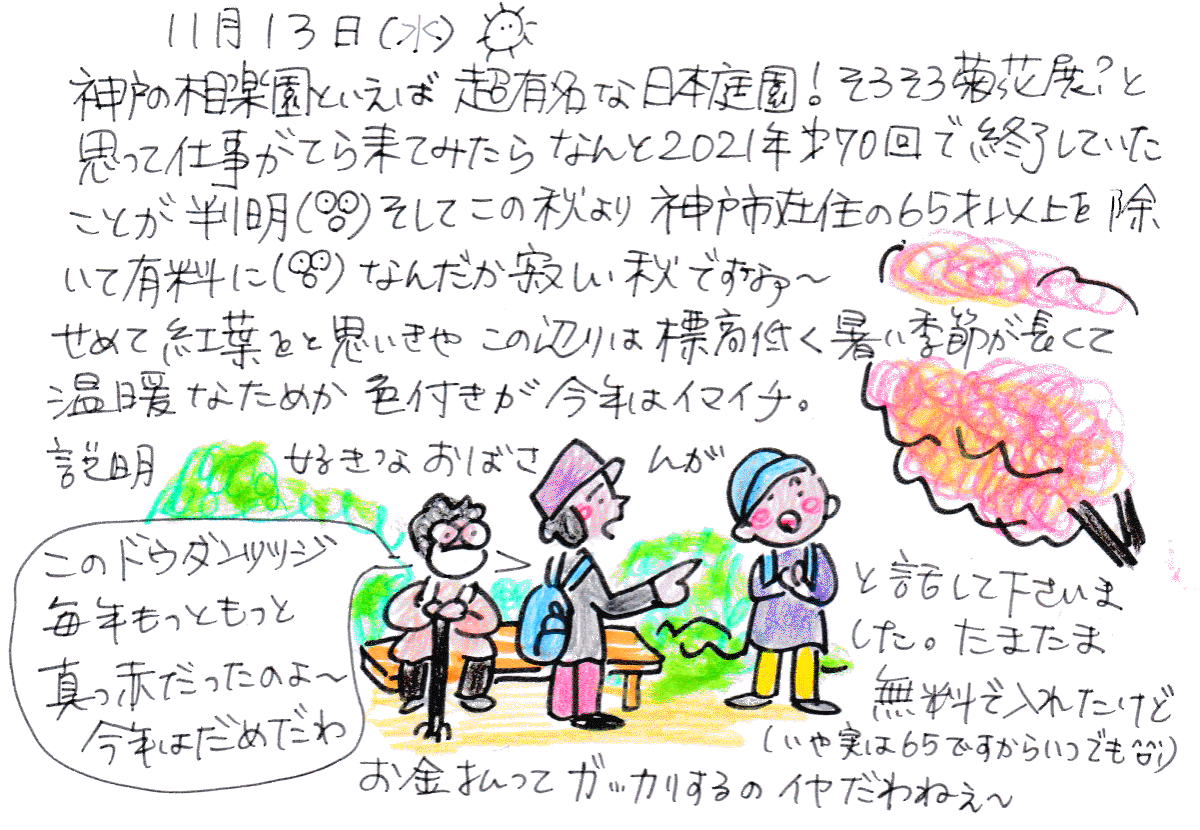 11月13日(水)
神戸の相楽園といえば 超有名な日本庭園!そろそろ菊花展?と
思って仕事がてら来てみたら なんと2021年オ70回で終了していた
ことが判明( )そしてこの秋より 神戸市在住の65才以上を除
いて有料に( ) なんだか寂しい秋ですなぁ〜
せめて紅葉をと思いきや この辺りは標高低く暑い季節が長くて
温暖なためか 色付きが今年はイマイチ。
説明 好きなおばさ んが
このドウダンツツジ
毎年もっともっと
真っ赤だったのよ〜
今年はだめだわ
と話して下さいま
した。たまたま
無料で入れたけど
(いや実は65ですからいつでも )
お金払って ガッカリするの イヤだわねぇ〜